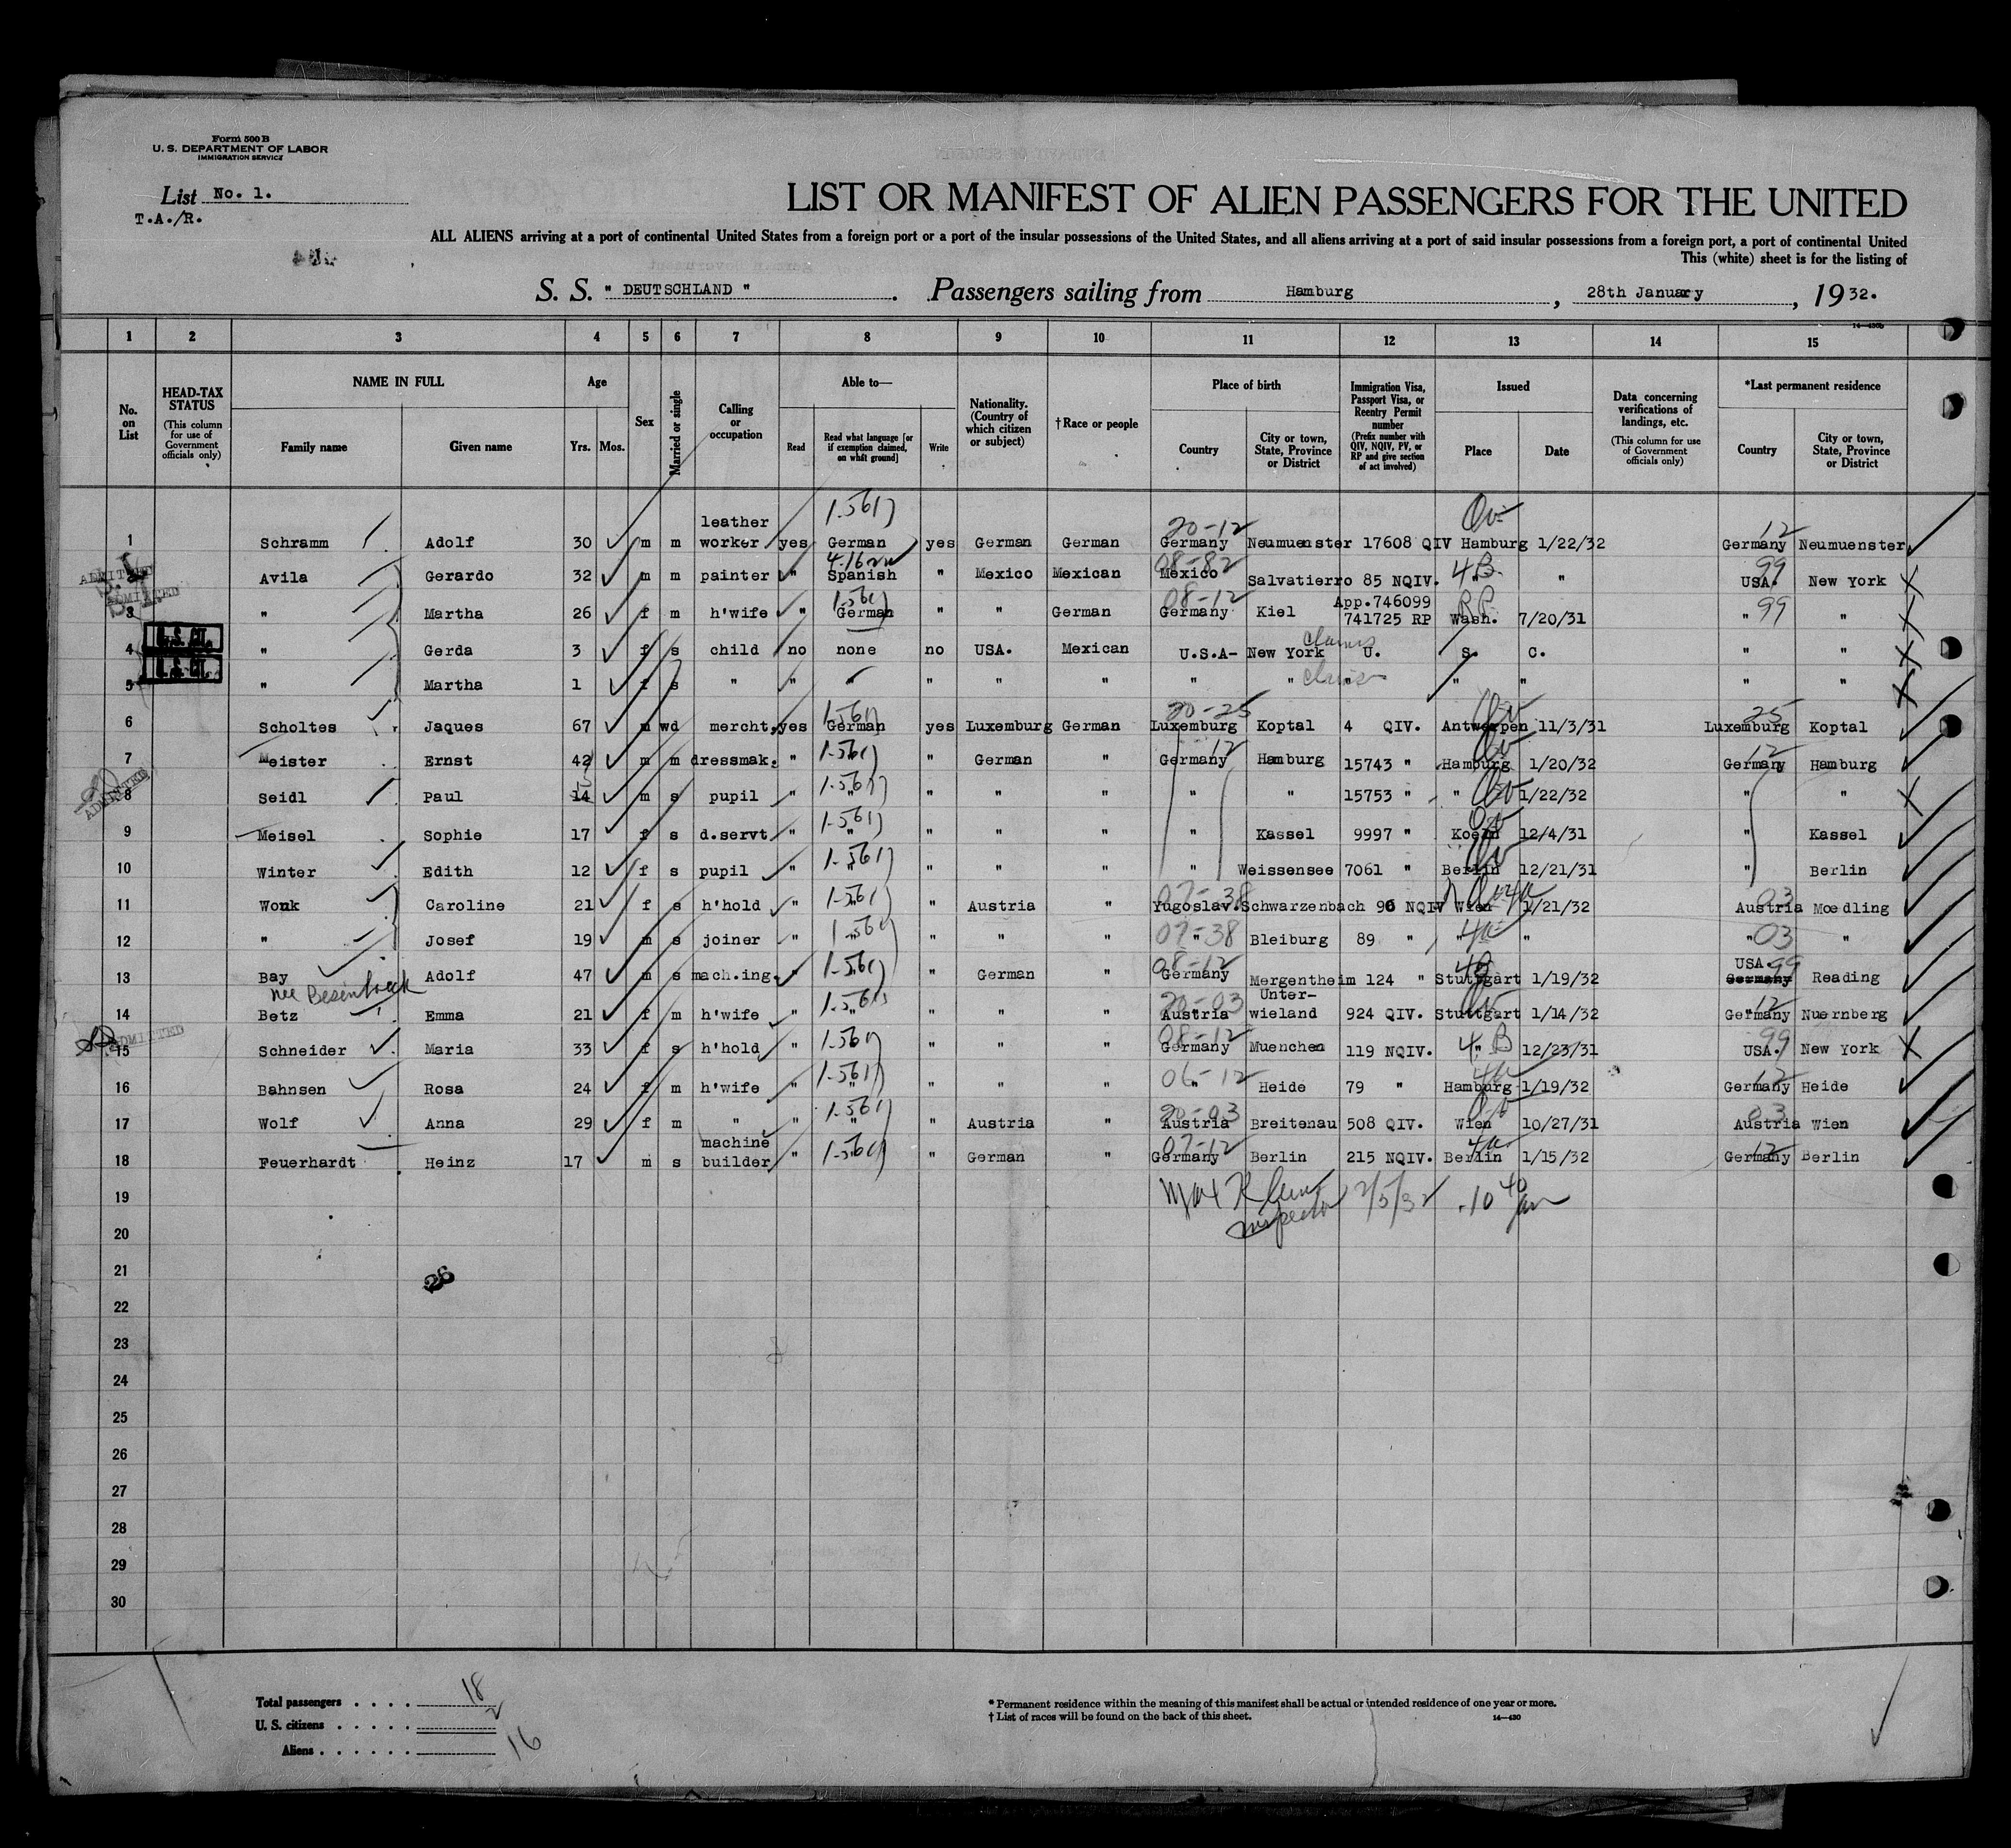 Form 500 B
U. S. DEPARTMENT OF LABOR
IMMIGRATION SERVICE
List No. 1.
T.A./R.
LIST OR MANIFEST OF ALIEN PASSENGERS FOR THE UNITED
ALL ALIENS arriving at a port of continental United States from a foreign port or a port of the insular possessions of the United States, and all aliens arriving at a port of said insular possessions from a foreign port, a port of continental United
This (white) sheet is for the listing of
S. S. " DEUTSCHLAND " . Passengers sailing from Hamburg , 28th January , 19 32.
14—430b
1 2 3 4 5 6 7 8 9 10 11 12 13 14 15
No. on List
HEAD-TAX STATUS (This column for use of Government officials only)
NAME IN FULL Family name Given name
Age Yrs. Mos.
Sex
Married or single
Calling or occupation
Able to— Read Read what language [or if exemption claimed, on what ground] Write
Nationality. (Country of which citizen or subject)
†Race or people
Place of birth Country City or town, State, Province or District
Immigration Visa, Passport Visa, or Reentry Permit number (Prefix number with QIV, NQIV, PV, or RP and give section of act involved)
Issued Place Date
Data concerning verifications of landings, etc. (This column for use of Government officials only)
*Last permanent residence Country City or town, State, Province or District
1 Schramm Adolf 30 m m leather worker yes German 1-561) yes German German 20-12 Germany Neumuenster 17608 QIV Hamburg 1/22/32 12 Germany Neumuenster
ADMITTED 2 Avila Gerardo 32 m m painter " Spanish " Mexico Mexican 08-82 Mexico Salvatierro 85 NQIV. 4B " " 99 USA. New York
ADMITTED 3 " Martha 26 f m h'wife " 1-561) German " " German 08-12 Germany Kiel App.746099 741725 RP RP Wash. 7/20/31 " 99 "
4 U.S. CIT. " Gerda 3 f s child no none no USA. Mexican U.S.A- New York claims U. S. C. " "
5 U.S. CIT. " Martha 1 f s " " " " " " " " claims " " " " "
6 Scholtes Jaques 67 m wd mercht. yes 1-561) German yes Luxemburg German 20-25 Luxemburg Koptal 4 QIV. Antwerpen 11/3/31 25 Luxemburg Koptal
7 Meister Ernst 42 m m dressmak. " 1-561) " German " 12 Germany Hamburg 15743 " Hamburg 1/20/32 12 Germany Hamburg
ADMITTED 8 Seidl Paul 14 m s pupil " 1-561) " " " " " " 15753 " " 1/22/32 " "
9 Meisel Sophie 17 f s d.servt. " 1-561) " " " " " Kassel 9997 " Koeln 12/4/31 " Kassel
10 Winter Edith 12 f s pupil " 1-561) " " " " " Weissensee 7061 " Berlin 12/21/31 Berlin
11 Wonk Caroline 21 f s h'hold " 1-561) " " Austria " 07-38 Yugoslav. Schwarzenbach 90 NQIV Wien 1/21/32 03 Austria Moedling
12 " Josef 19 m s joiner " 1-561) " " " " 07-38 " Bleiburg 89 " " 4a " " 03 "
13 Bay Adolf 47 m s mach.ing. " 1-561) " German " 08-12 Germany Mergentheim 124 " 4B Stuttgart 1/19/32 USA. 99 Germany Reading
nee Besenbeck
14 Betz Emma 21 f m h'wife " 1-561) " " " " 20-03 Austria Unter- wieland 924 QIV. Stuttgart 1/14/32 12 Germany Nuernberg
ADMITTED 15 Schneider Maria 33 f s h'hold " 1-561) " " " 08-12 Germany Muenchen 119 NQIV. 4B " 12/23/31 99 USA. New York
16 Bahnsen Rosa 24 f m h'wife " 1-561) " " " " 06-12 " Heide 79 " 4a Hamburg 1/19/32 12 Germany Heide
17 Wolf Anna 29 f m " " 1-561) " " Austria " 20-03 Austria Breitenau 508 QIV. Wien 10/27/31 03 Austria Wien
18 Feuerhardt Heinz 17 m s machine builder " 1-561) " German " 07-12 Germany Berlin 215 NQIV. 4a Berlin 1/15/32 12 Germany Berlin
19 Max Klein 2/5/32 10 40 am
Inspector
20
21 26
22
23
24
25
26
27
28
29
30
Total passengers . . . . 18
U. S. citizens . . . . . 2
Aliens . . . . . . 16
* Permanent residence within the meaning of this manifest shall be actual or intended residence of one year or more.
† List of races will be found on the back of this sheet. 14—430